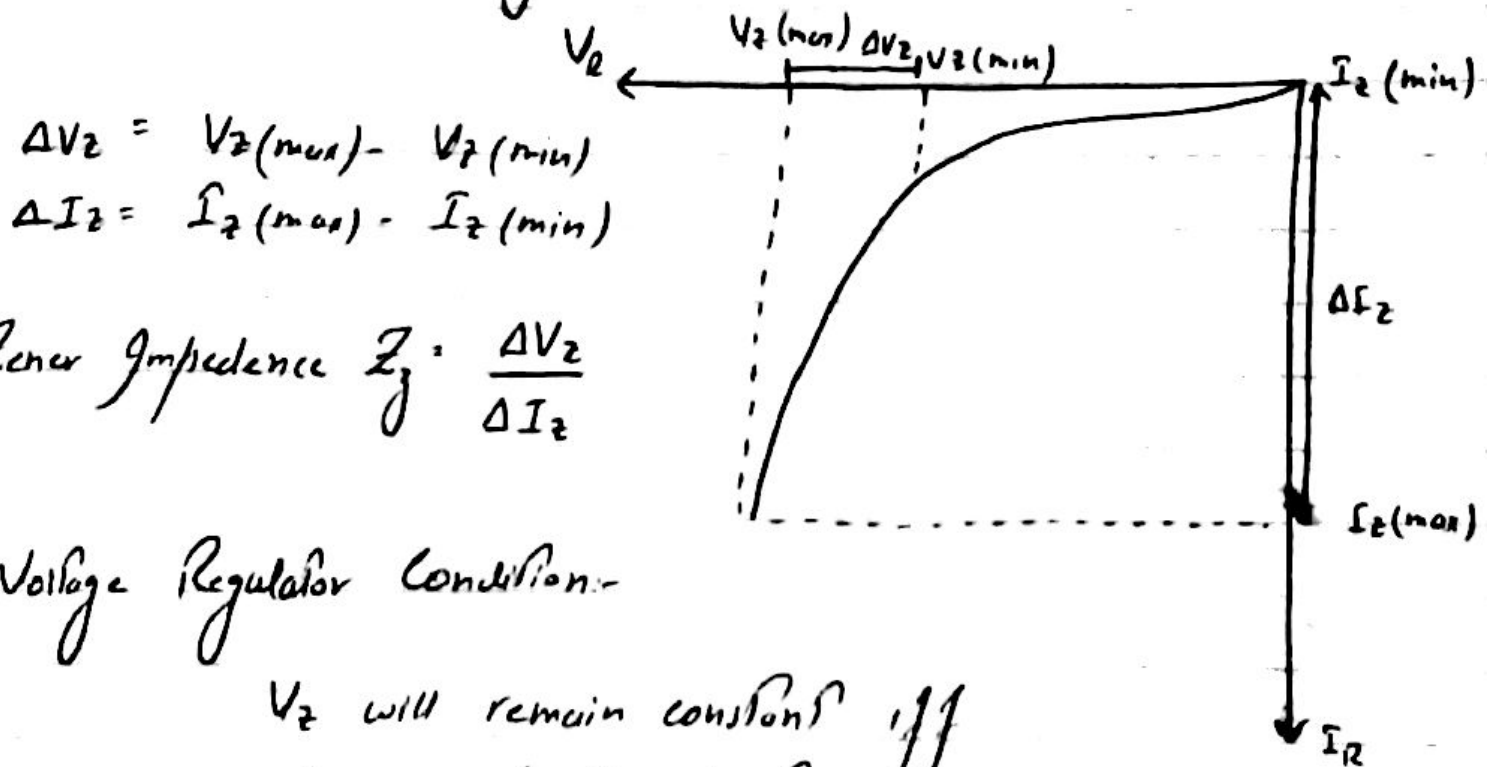 V_R
V_z (max) ΔV_z V_z (min)
I_z (min)
ΔV_z = V_z (max) - V_z (min)
ΔI_z = I_z (max) - I_z (min)
ΔI_z
Zener Impedence Z_z = ΔV_z / ΔI_z
I_z (max)
Voltage Regulator Condition:-
V_z will remain constant iff
I_R